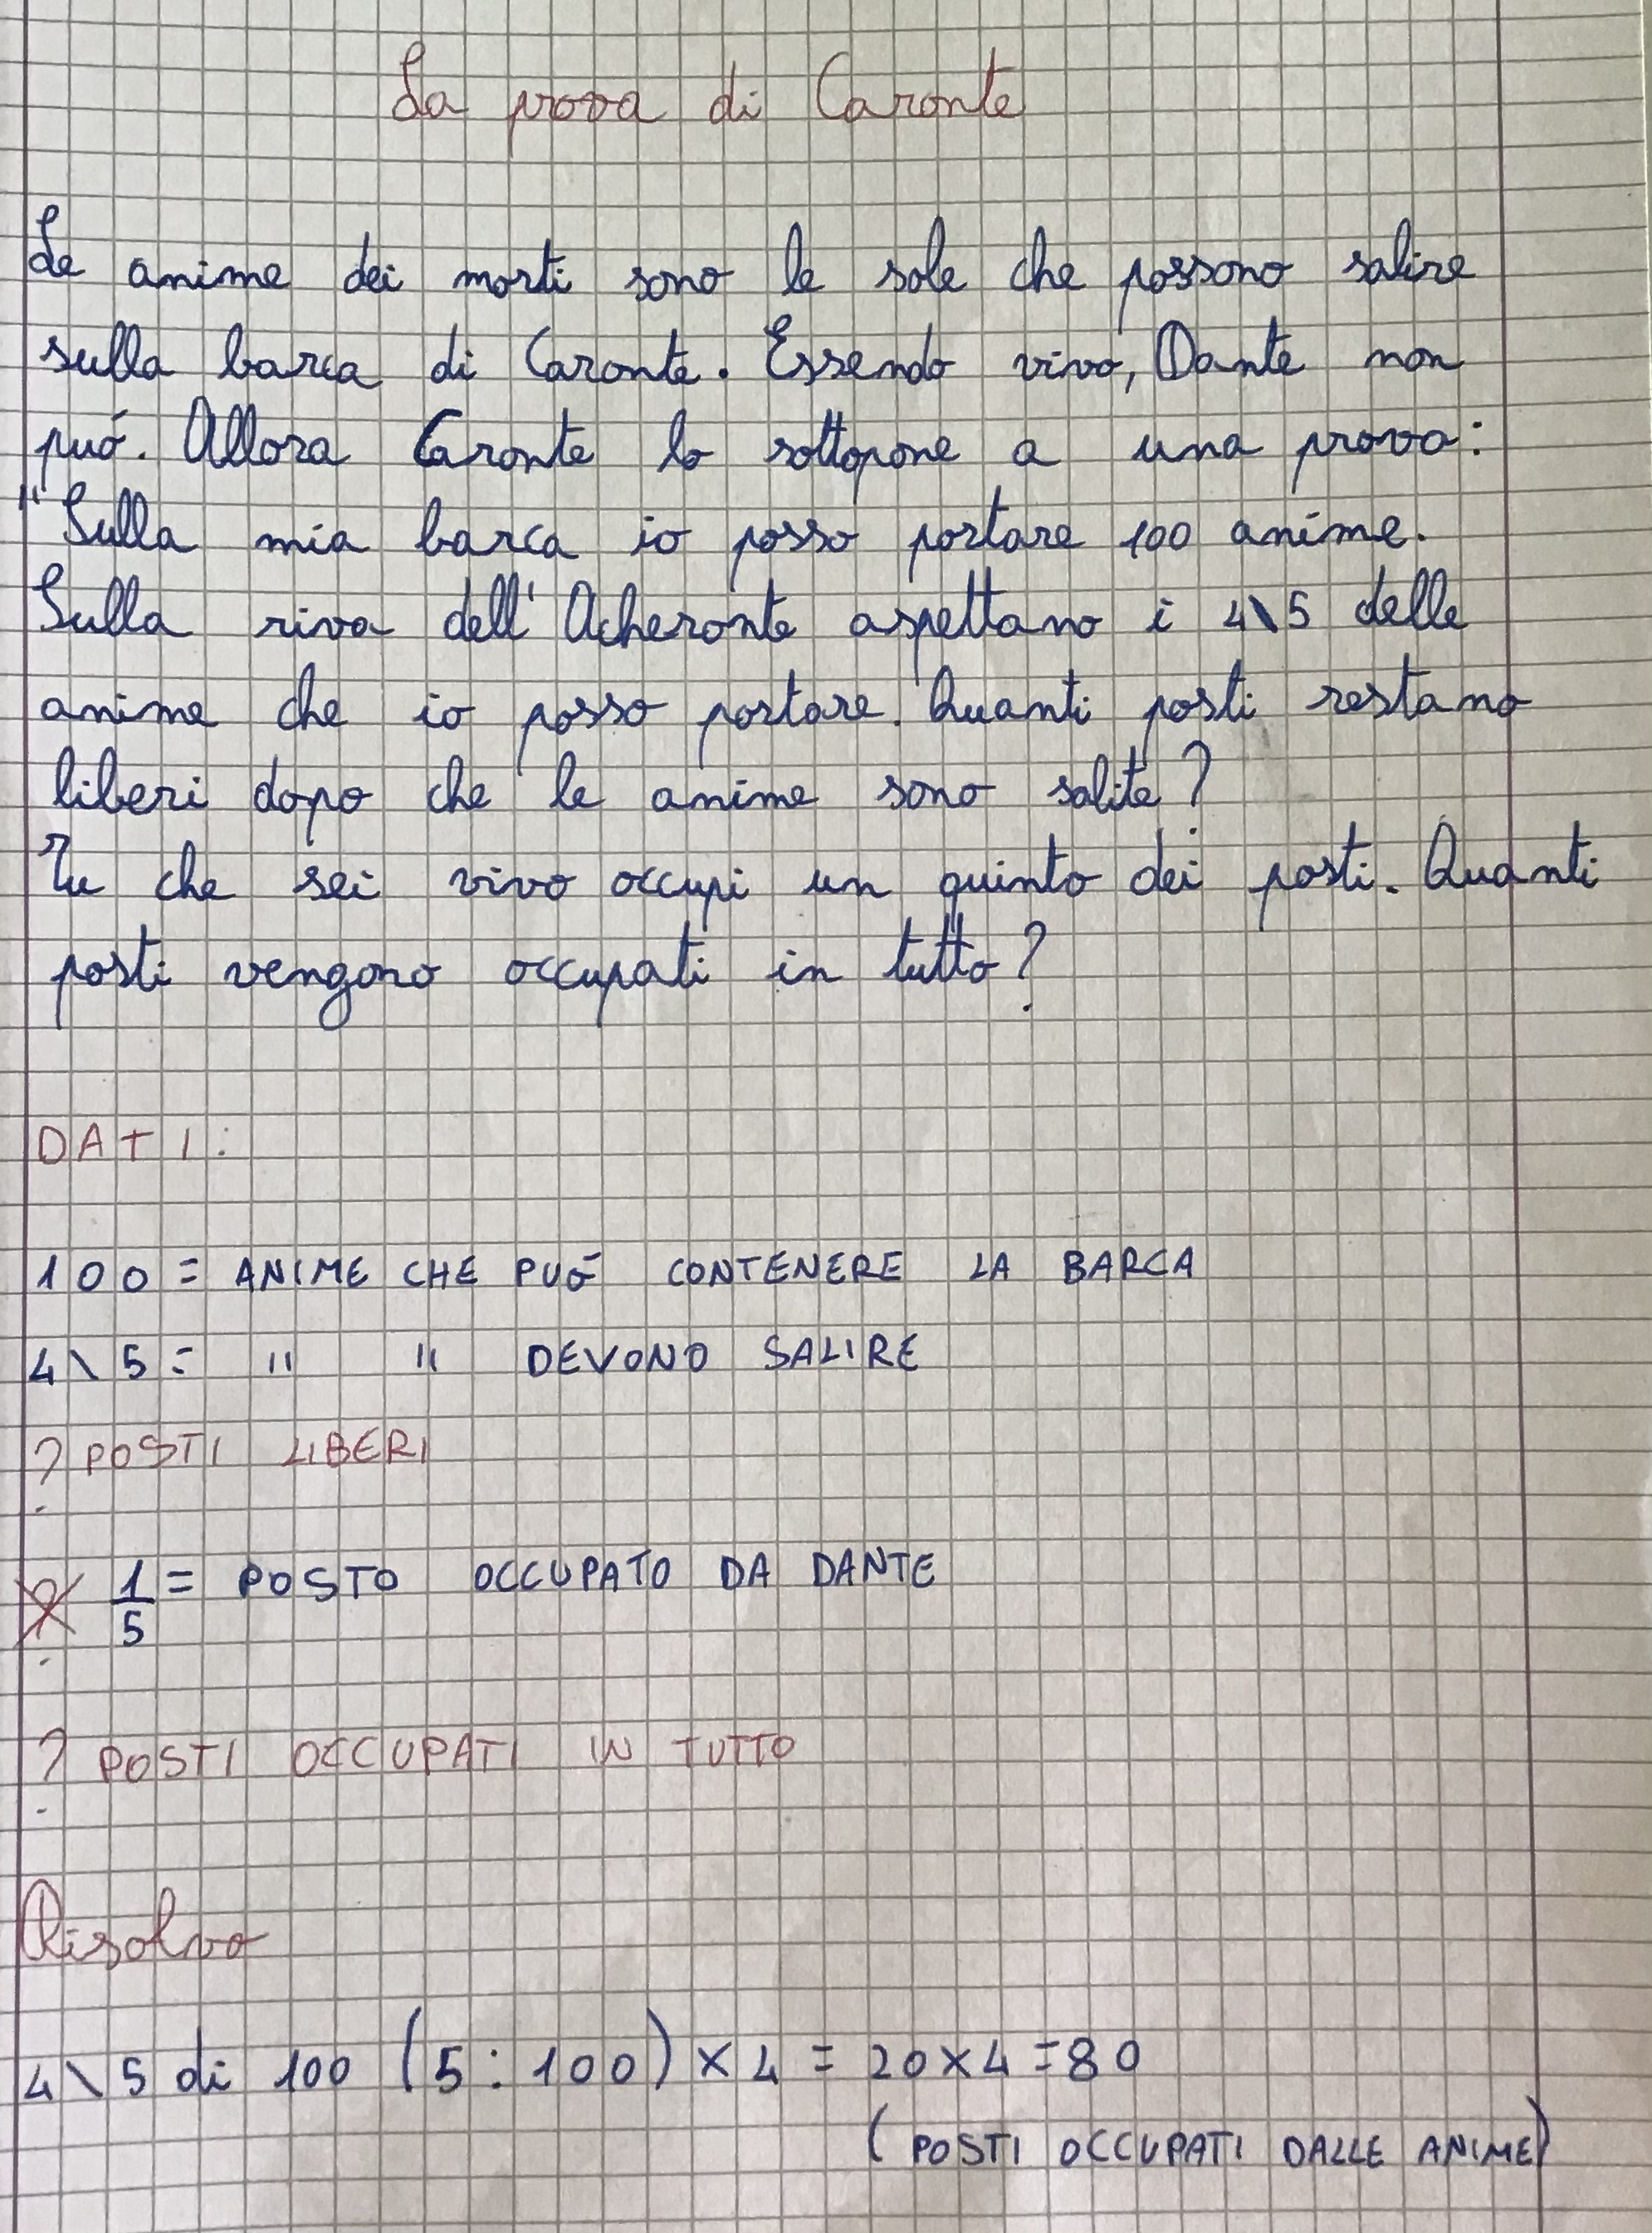 La prova di Caronte
Le anime dei morti sono le sole che possono salire
sulla barca di Caronte. Essendo vivo, Dante non
puó. Allora Caronte lo sottopone a una prova:
"Sulla mia barca io posso portare 100 anime.
Sulla riva dell'Acheronte aspettano i 4\5 delle
anime che io posso portare. Quanti posti restano
liberi dopo che le anime sono salite?
Tu che sei vivo occupi un quinto dei posti. Quanti
posti vengono occupati in tutto?
DATI:
100 = ANIME CHE PUÓ CONTENERE LA BARCA
4\5 = " " DEVONO SALIRE
? POSTI LIBERI
? 1/5 = POSTO OCCUPATO DA DANTE
? POSTI OCCUPATI IN TUTTO
Risolvo
4\5 di 100 (5:100) × 4 = 20×4=80
(POSTI OCCUPATI DALLE ANIME)